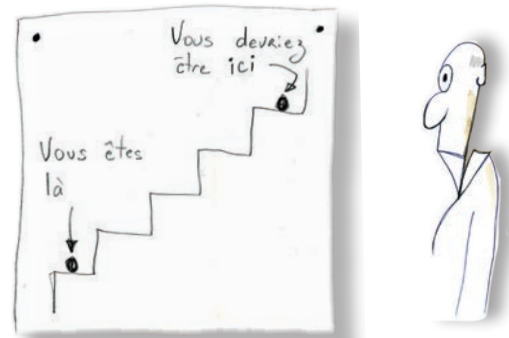 Vous devriez
être ici
Vous êtes
là